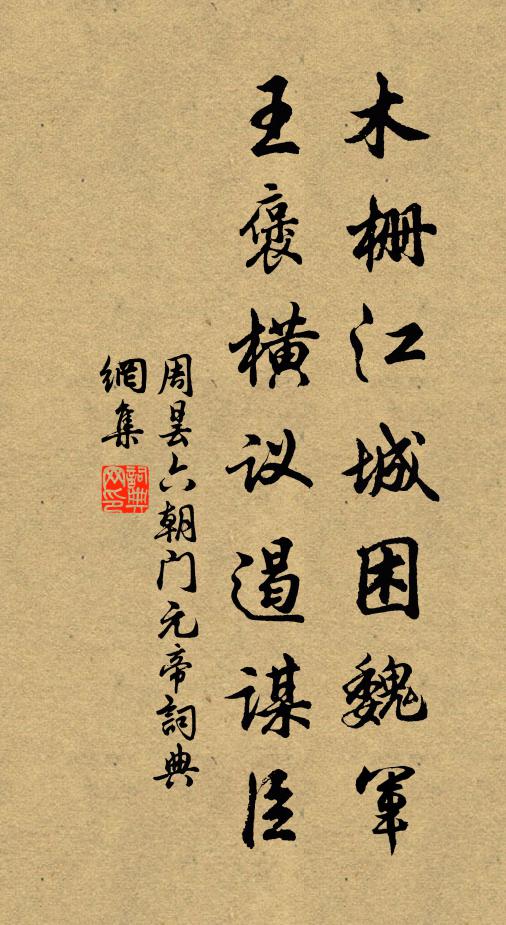 木栅江城困魏军
王褒横议遏谋臣
周昙六朝门元帝詞典
網集
詞典
网印